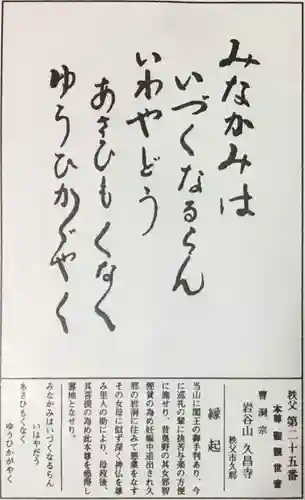 みなかみは
いづくなるらん
いわやどう
あさひもくなく
ゆうひかゞやく
秩父第二十五番
本尊 聖観世音
曹洞宗
岩谷山 久昌寺
秩父市久那
縁起
当山に閻王の御手判あり、今
に巡礼の輩に抜苦与楽の方便
に施せり、昔奥野の其女邪智
慳貪の為め妊娠中追出され久
那の岩洞に住みて悪業をなす
その女母に似ず深く神仏を尊
み里人の助により、母歿後
其菩提の為め此本尊を感得し
霊地となせり。
みなかみはいづくなるらん
いはやだう
あさひもくなく
ゆうひかがやく